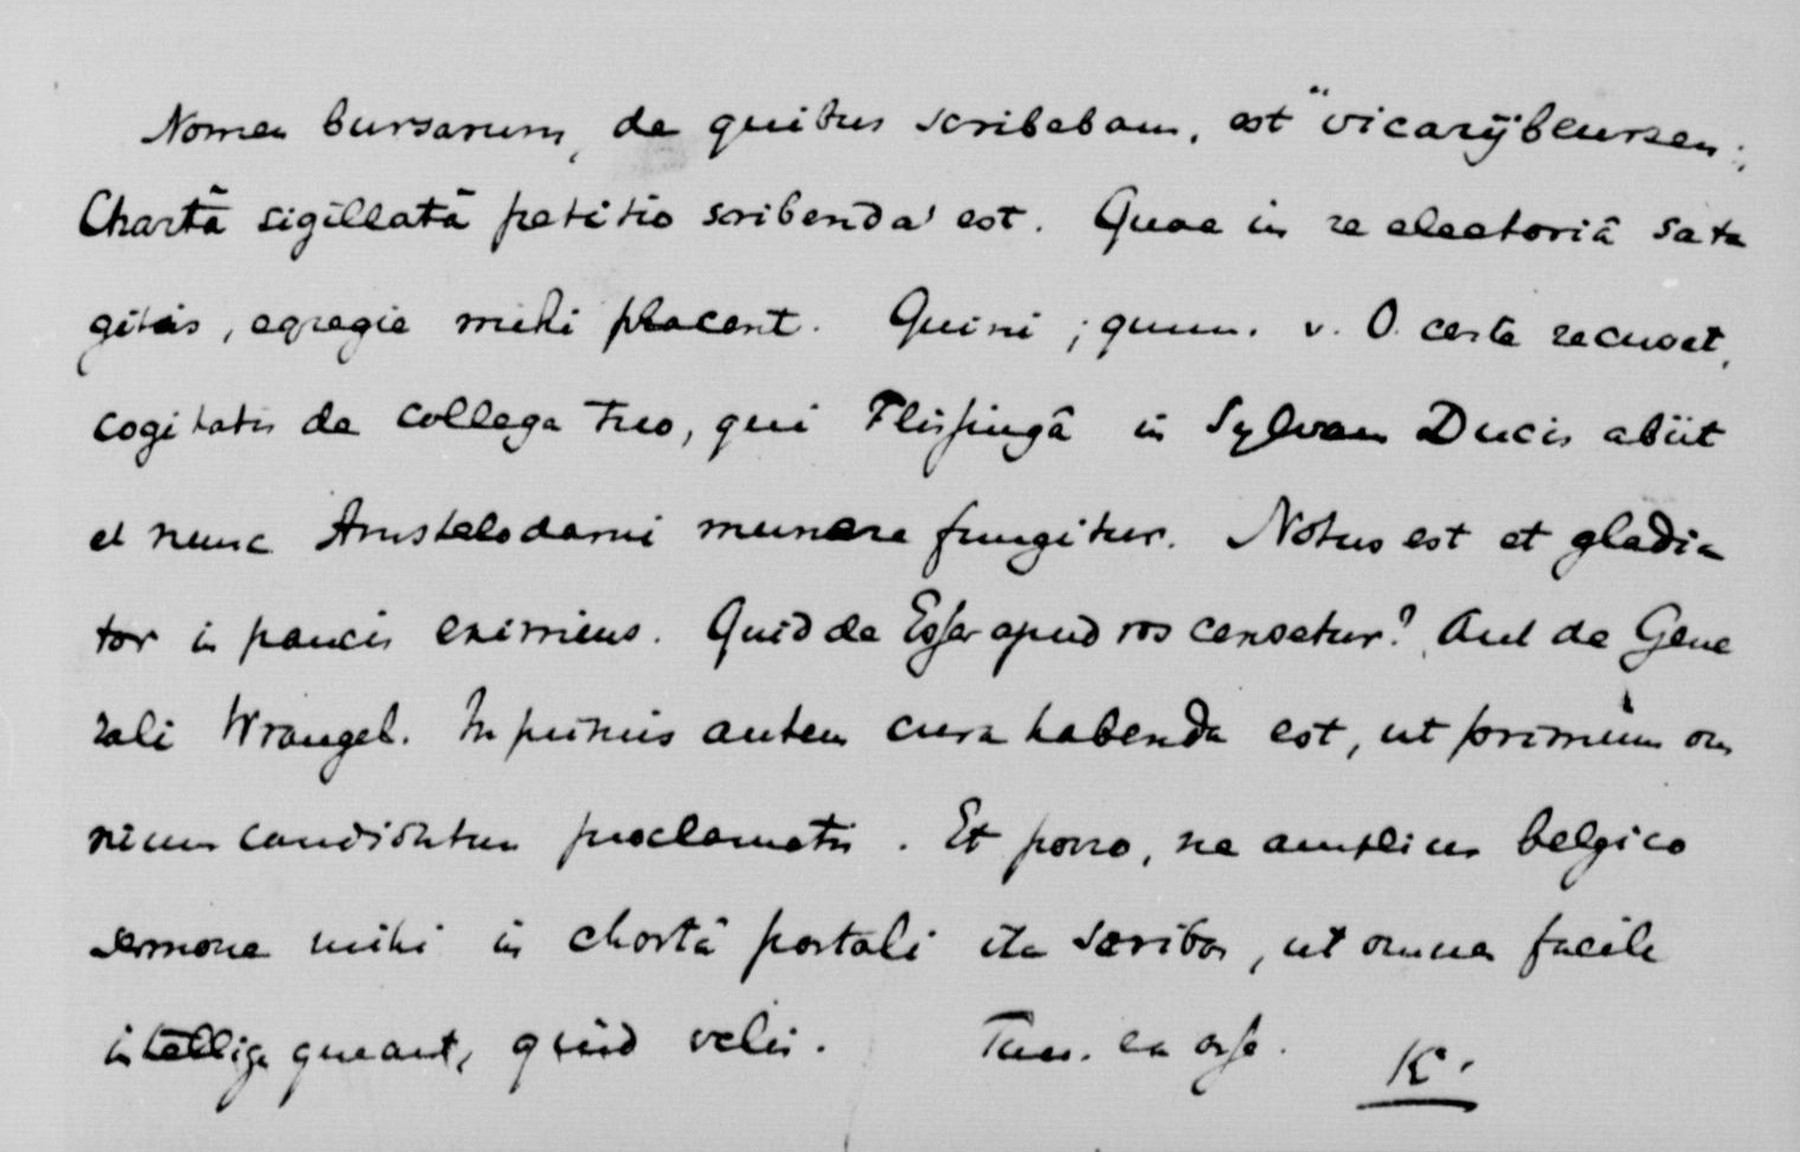 Nomen bursarum, de quibus scribebam, est "vicarijbeurzen;
Chartâ sigillatâ petitio scribenda est. Quae in re electoriâ sata
gitis, egregie mihi placent. Quini; quum. v. O. certe recuset,
cogitatis de collega tuo, qui Flissingâ in Sylvam Ducis abiit
et nunc Amstelodami munere fungitur. Notus est et gladia
tor in paucis eximius. Quid de Esser apud vos censetur? Aut de Gene
rali Wrangel. In primis autem cura habenda est, ut primum om
nium candidatum proclametis. Et porro, ne amplius belgico
sermone mihi in chartâ postali ita scribas, ut omnes facile
intellige queant, quid velis. Tuus. ex asse. K.